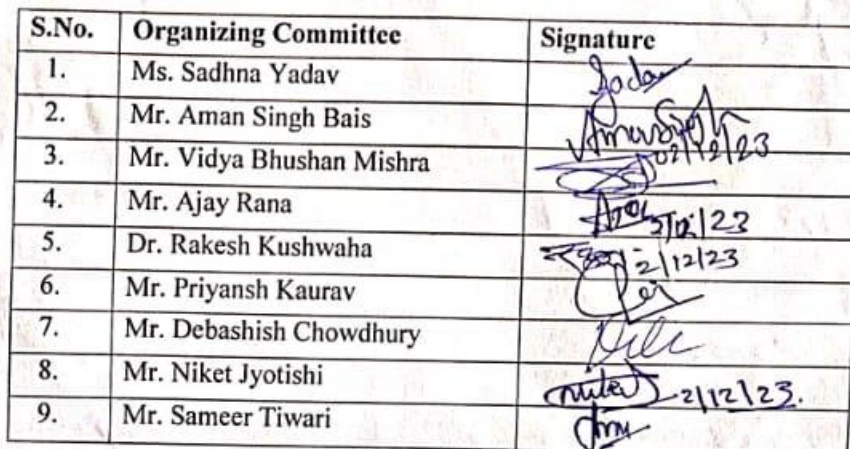 S.No. Organizing Committee Signature
1. Ms. Sadhna Yadav
2. Mr. Aman Singh Bais
3. Mr. Vidya Bhushan Mishra 02/12/23
4. Mr. Ajay Rana 2/12/23
5. Dr. Rakesh Kushwaha 2/12/23
6. Mr. Priyansh Kaurav
7. Mr. Debashish Chowdhury
8. Mr. Niket Jyotishi 2/12/23.
9. Mr. Sameer Tiwari